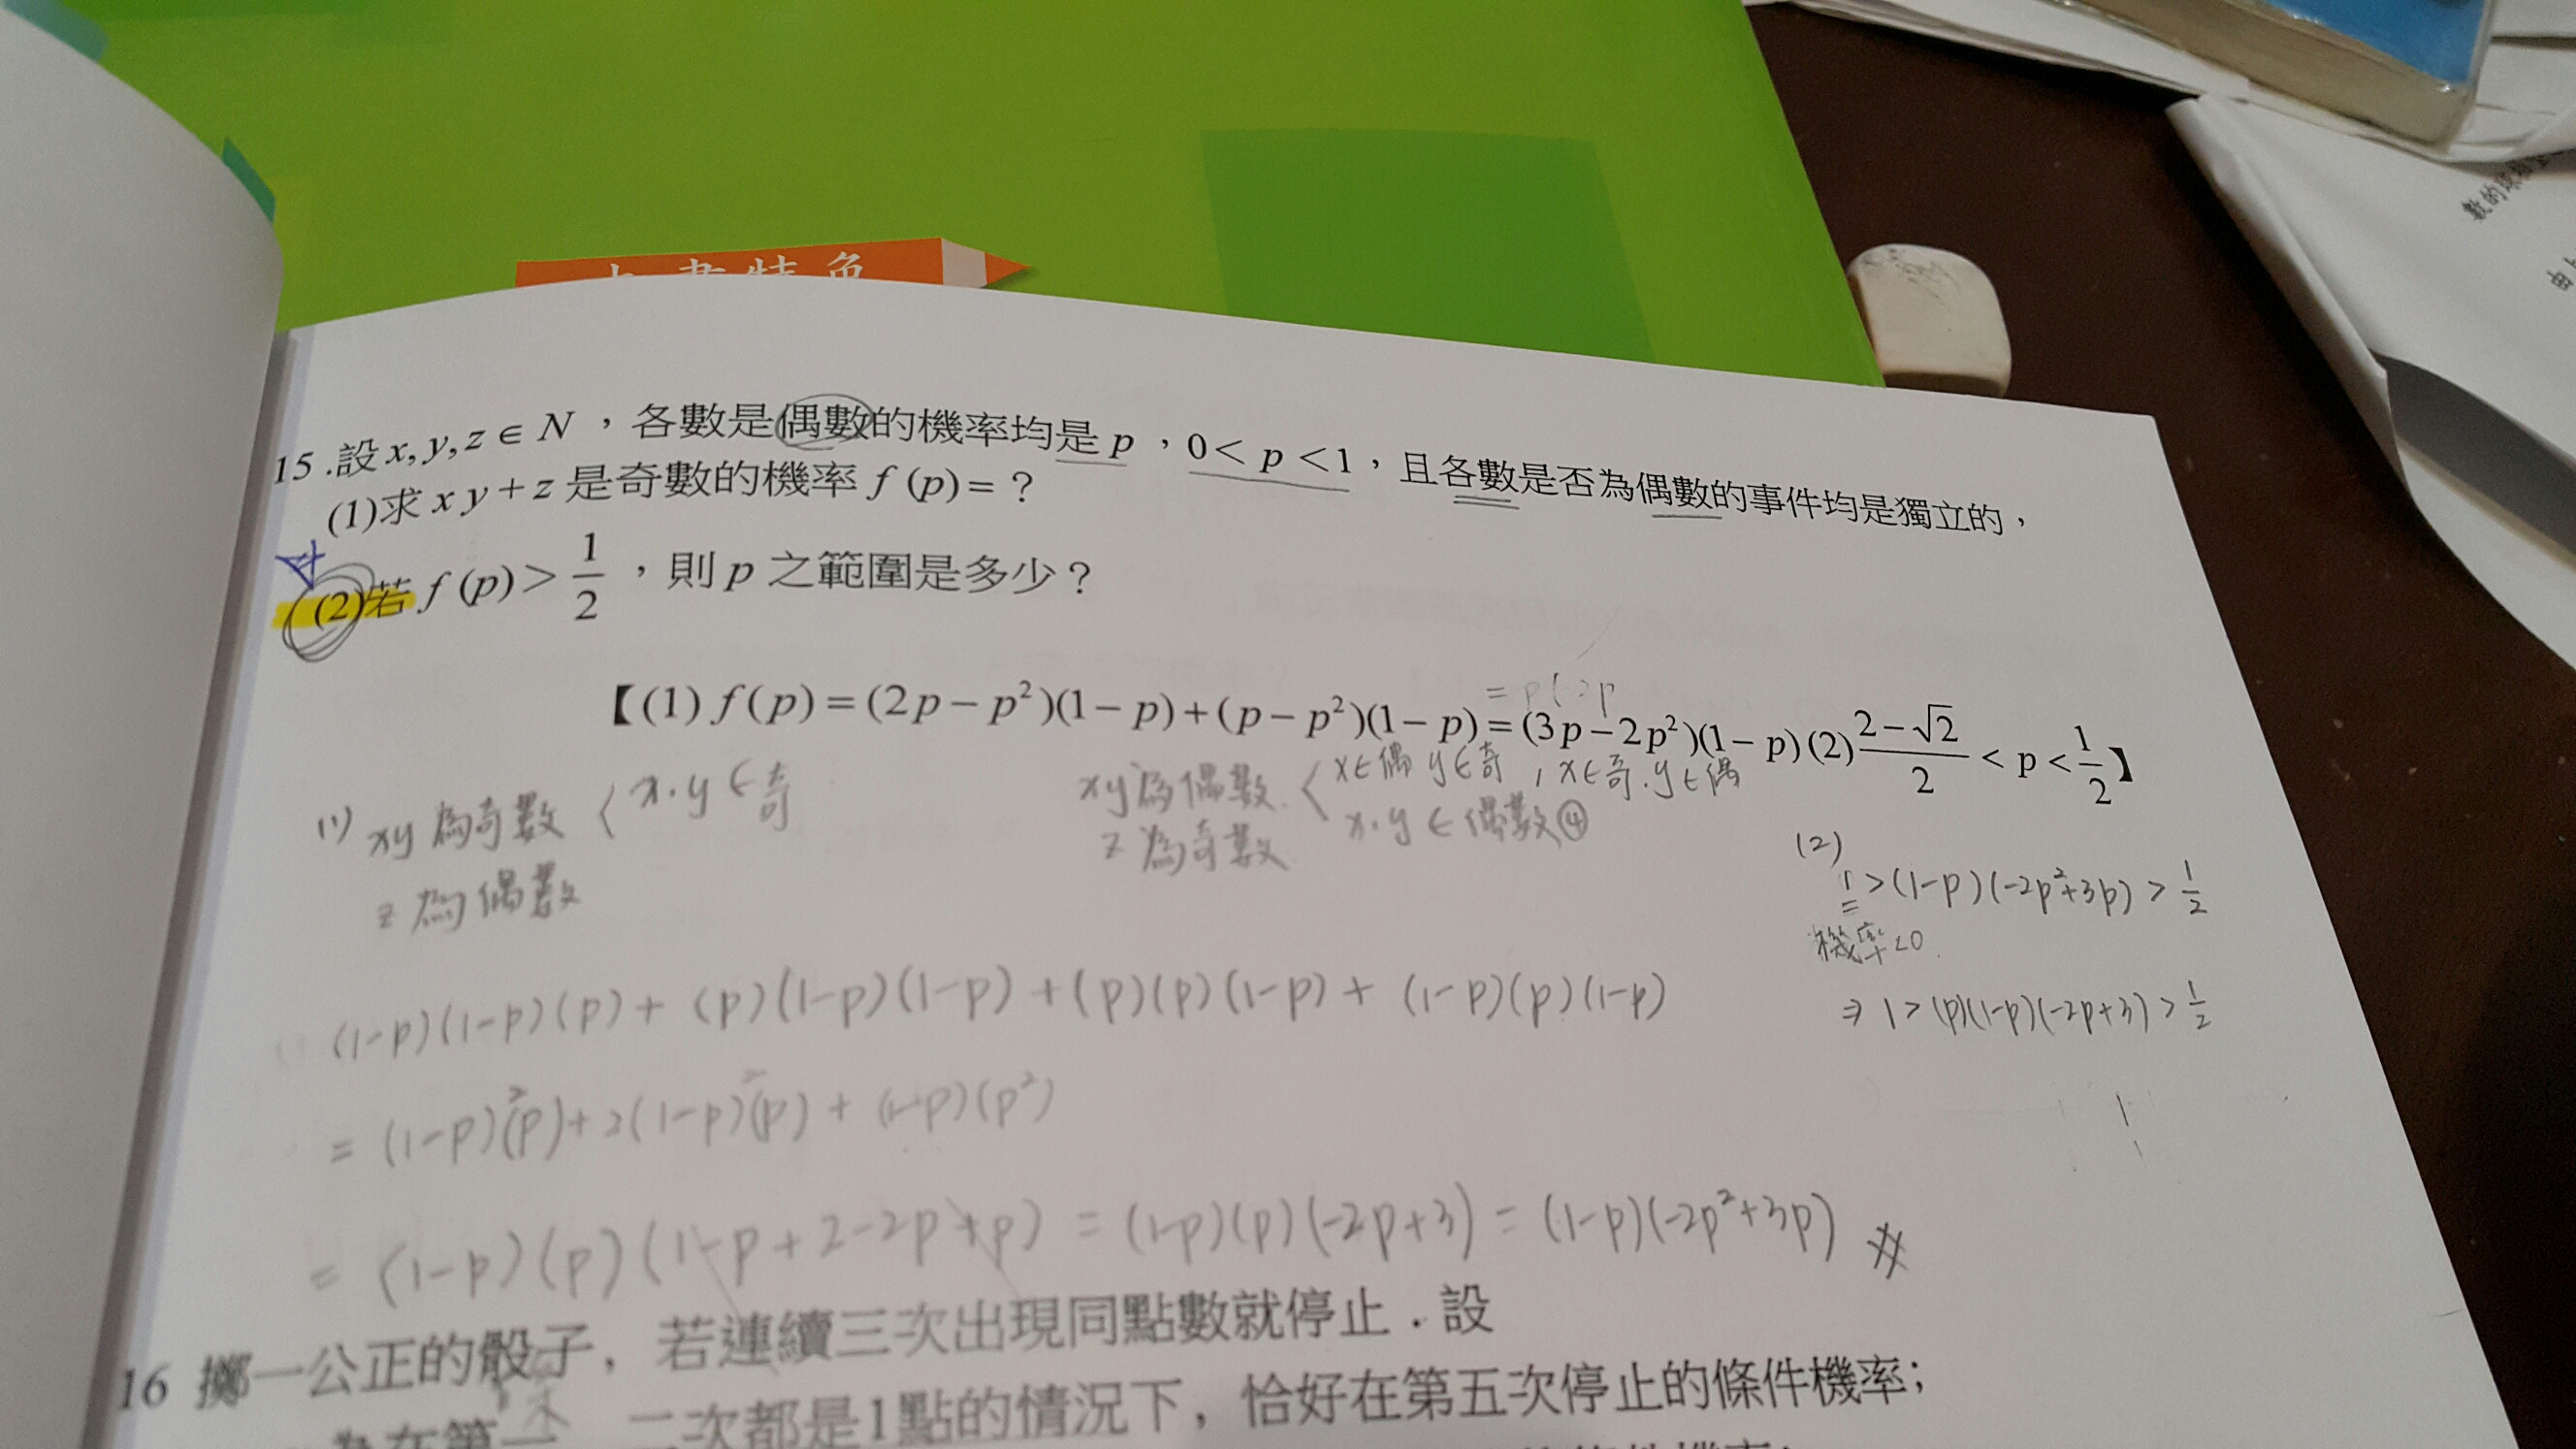 本書特色
15.設x,y,z∈N，各數是偶數的機率均是p，0<p<1，且各數是否為偶數的事件均是獨立的，
(1)求xy+z是奇數的機率f(p)=？
(2)若f(p)>1/2，則p之範圍是多少？
= p(2p
【(1)f(p)=(2p−p²)(1−p)+(p−p²)(1−p)=(3p−2p²)(1−p)(2)(2−√2)/2<p<1/2】
(1) xy為奇數〈x.y∈奇
z為偶數
xy為偶數〈x∈偶 y∈奇，x∈奇.y∈偶
x.y∈偶數④
z為奇數
(2)
1>(1-p)(-2p²+3p)>1/2
機率<0
⇒1>(p)(1-p)(-2p+3)>1/2
(1-p)(1-p)(p)+(p)(1-p)(1-p)+(p)(p)(1-p)+(1-p)(p)(1-p)
=(1-p)²(p)+2(1-p)²(p)+(1-p)(p²)
=(1-p)(p)(1-p+2-2p+p)=(1-p)(p)(-2p+3)=(1-p)(-2p²+3p)
16 擲一公正的骰子，若連續三次出現同點數就停止．設
為在第一、二次都是1點的情況下，恰好在第五次停止的條件機率；
數的
由